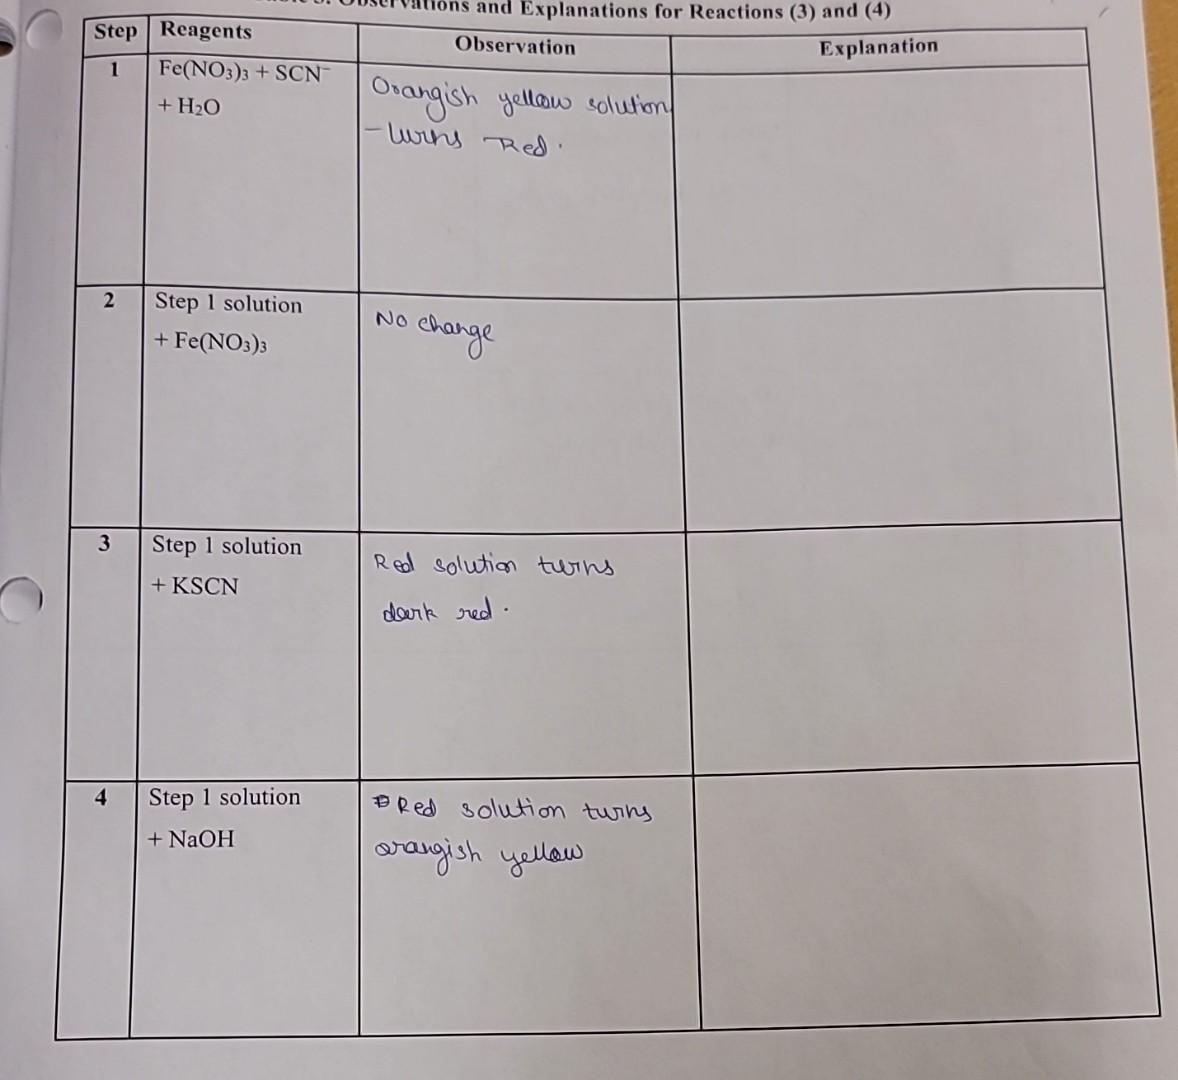 Observations and Explanations for Reactions (3) and (4)
Step Reagents Observation Explanation
1 Fe(NO₃)₃ + SCN⁻
+ H₂O
Orangish yellow solution
- turns Red.
2 Step 1 solution
+ Fe(NO₃)₃
No change
3 Step 1 solution
+ KSCN
Red solution turns
dark red.
4 Step 1 solution
+ NaOH
Red solution turns
orangish yellow